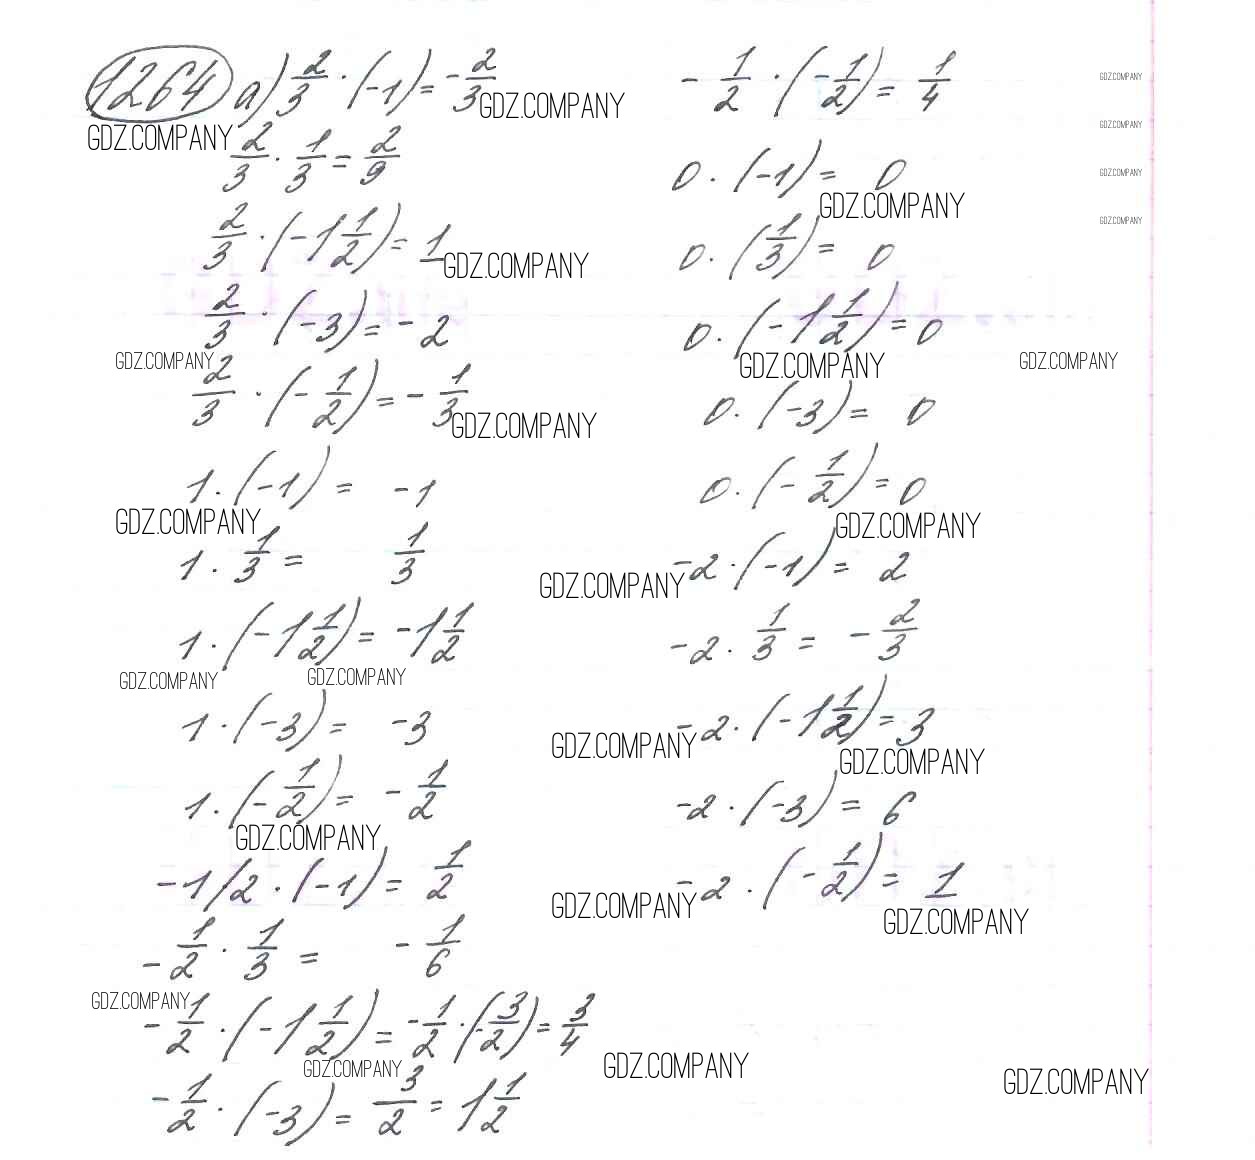 1264 a) 2/3 · (-1) = -2/3
GDZ.COMPANY
GDZ.COMPANY
2/3 · 1/3 = 2/9
2/3 · (-1 1/2) = 1
GDZ.COMPANY
2/3 · (-3) = -2
GDZ.COMPANY
2/3 · (-1/2) = -1/3
GDZ.COMPANY
1 · (-1) = -1
GDZ.COMPANY
1 · 1/3 = 1/3
1 · (-1 1/2) = -1 1/2
GDZ.COMPANY
GDZ.COMPANY
1 · (-3) = -3
1 · (-1/2) = -1/2
GDZ.COMPANY
-1/2 · (-1) = 1/2
-1/2 · 1/3 = -1/6
GDZ.COMPANY
-1/2 · (-1 1/2) = -1/2 · (-3/2) = 3/4
GDZ.COMPANY
GDZ.COMPANY
-1/2 · (-3) = 3/2 = 1 1/2
-1/2 · (-1/2) = 1/4
0 · (-1) = 0
GDZ.COMPANY
0 · (1/3) = 0
0 · (-1 1/2) = 0
GDZ.COMPANY
GDZ.COMPANY
0 · (-3) = 0
0 · (-1/2) = 0
GDZ.COMPANY
GDZ.COMPANY
-2 · (-1) = 2
-2 · 1/3 = -2/3
GDZ.COMPANY
-2 · (-1 1/2) = 3
GDZ.COMPANY
-2 · (-3) = 6
GDZ.COMPANY
-2 · (-1/2) = 1
GDZ.COMPANY
GDZ.COMPANY
GDZ.COMPANY
GDZ.COMPANY
GDZ.COMPANY
GDZ.COMPANY